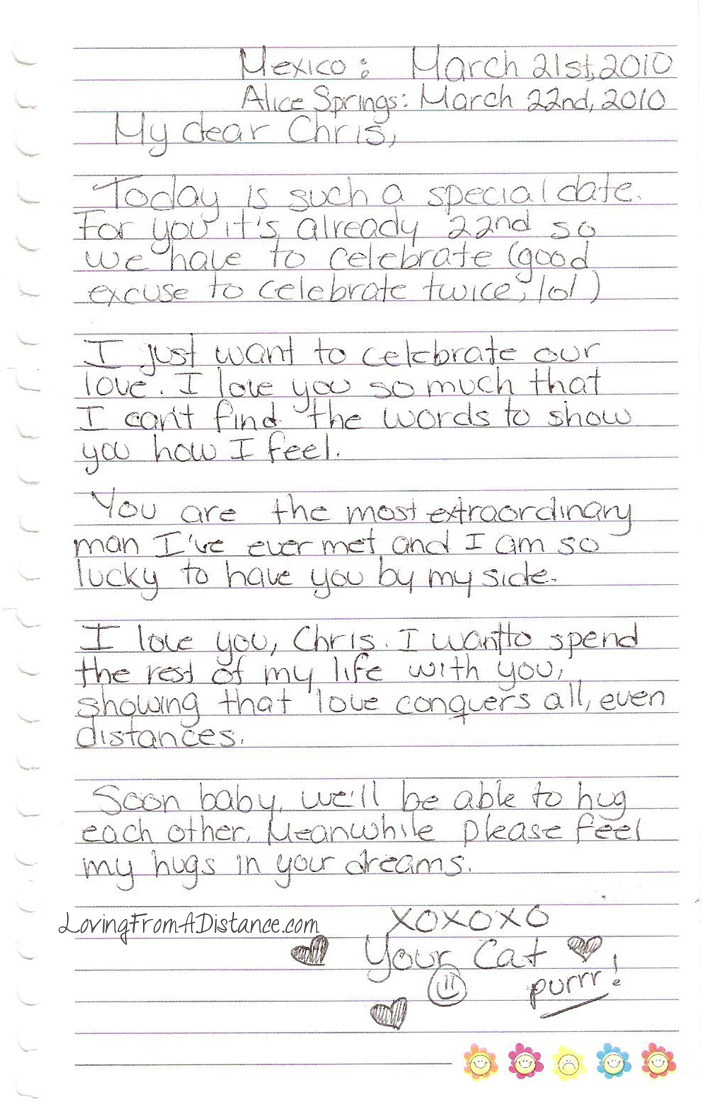 Mexico: March 21st, 2010
Alice Springs: March 22nd, 2010
My dear Chris,
Today is such a special date.
For you it's already 22nd so
we have to celebrate (good
excuse to celebrate twice, lol)
I just want to celebrate our
love. I love you so much that
I can't find the words to show
you how I feel.
You are the most extraordinary
man I've ever met and I am so
lucky to have you by my side.
I love you, Chris. I want to spend
the rest of my life with you,
showing that love conquers all, even
distances.
Soon baby, we'll be able to hug
each other. Meanwhile please feel
my hugs in your dreams.
LovingFromADistance.com
XOXOXO
Your Cat
purrr!